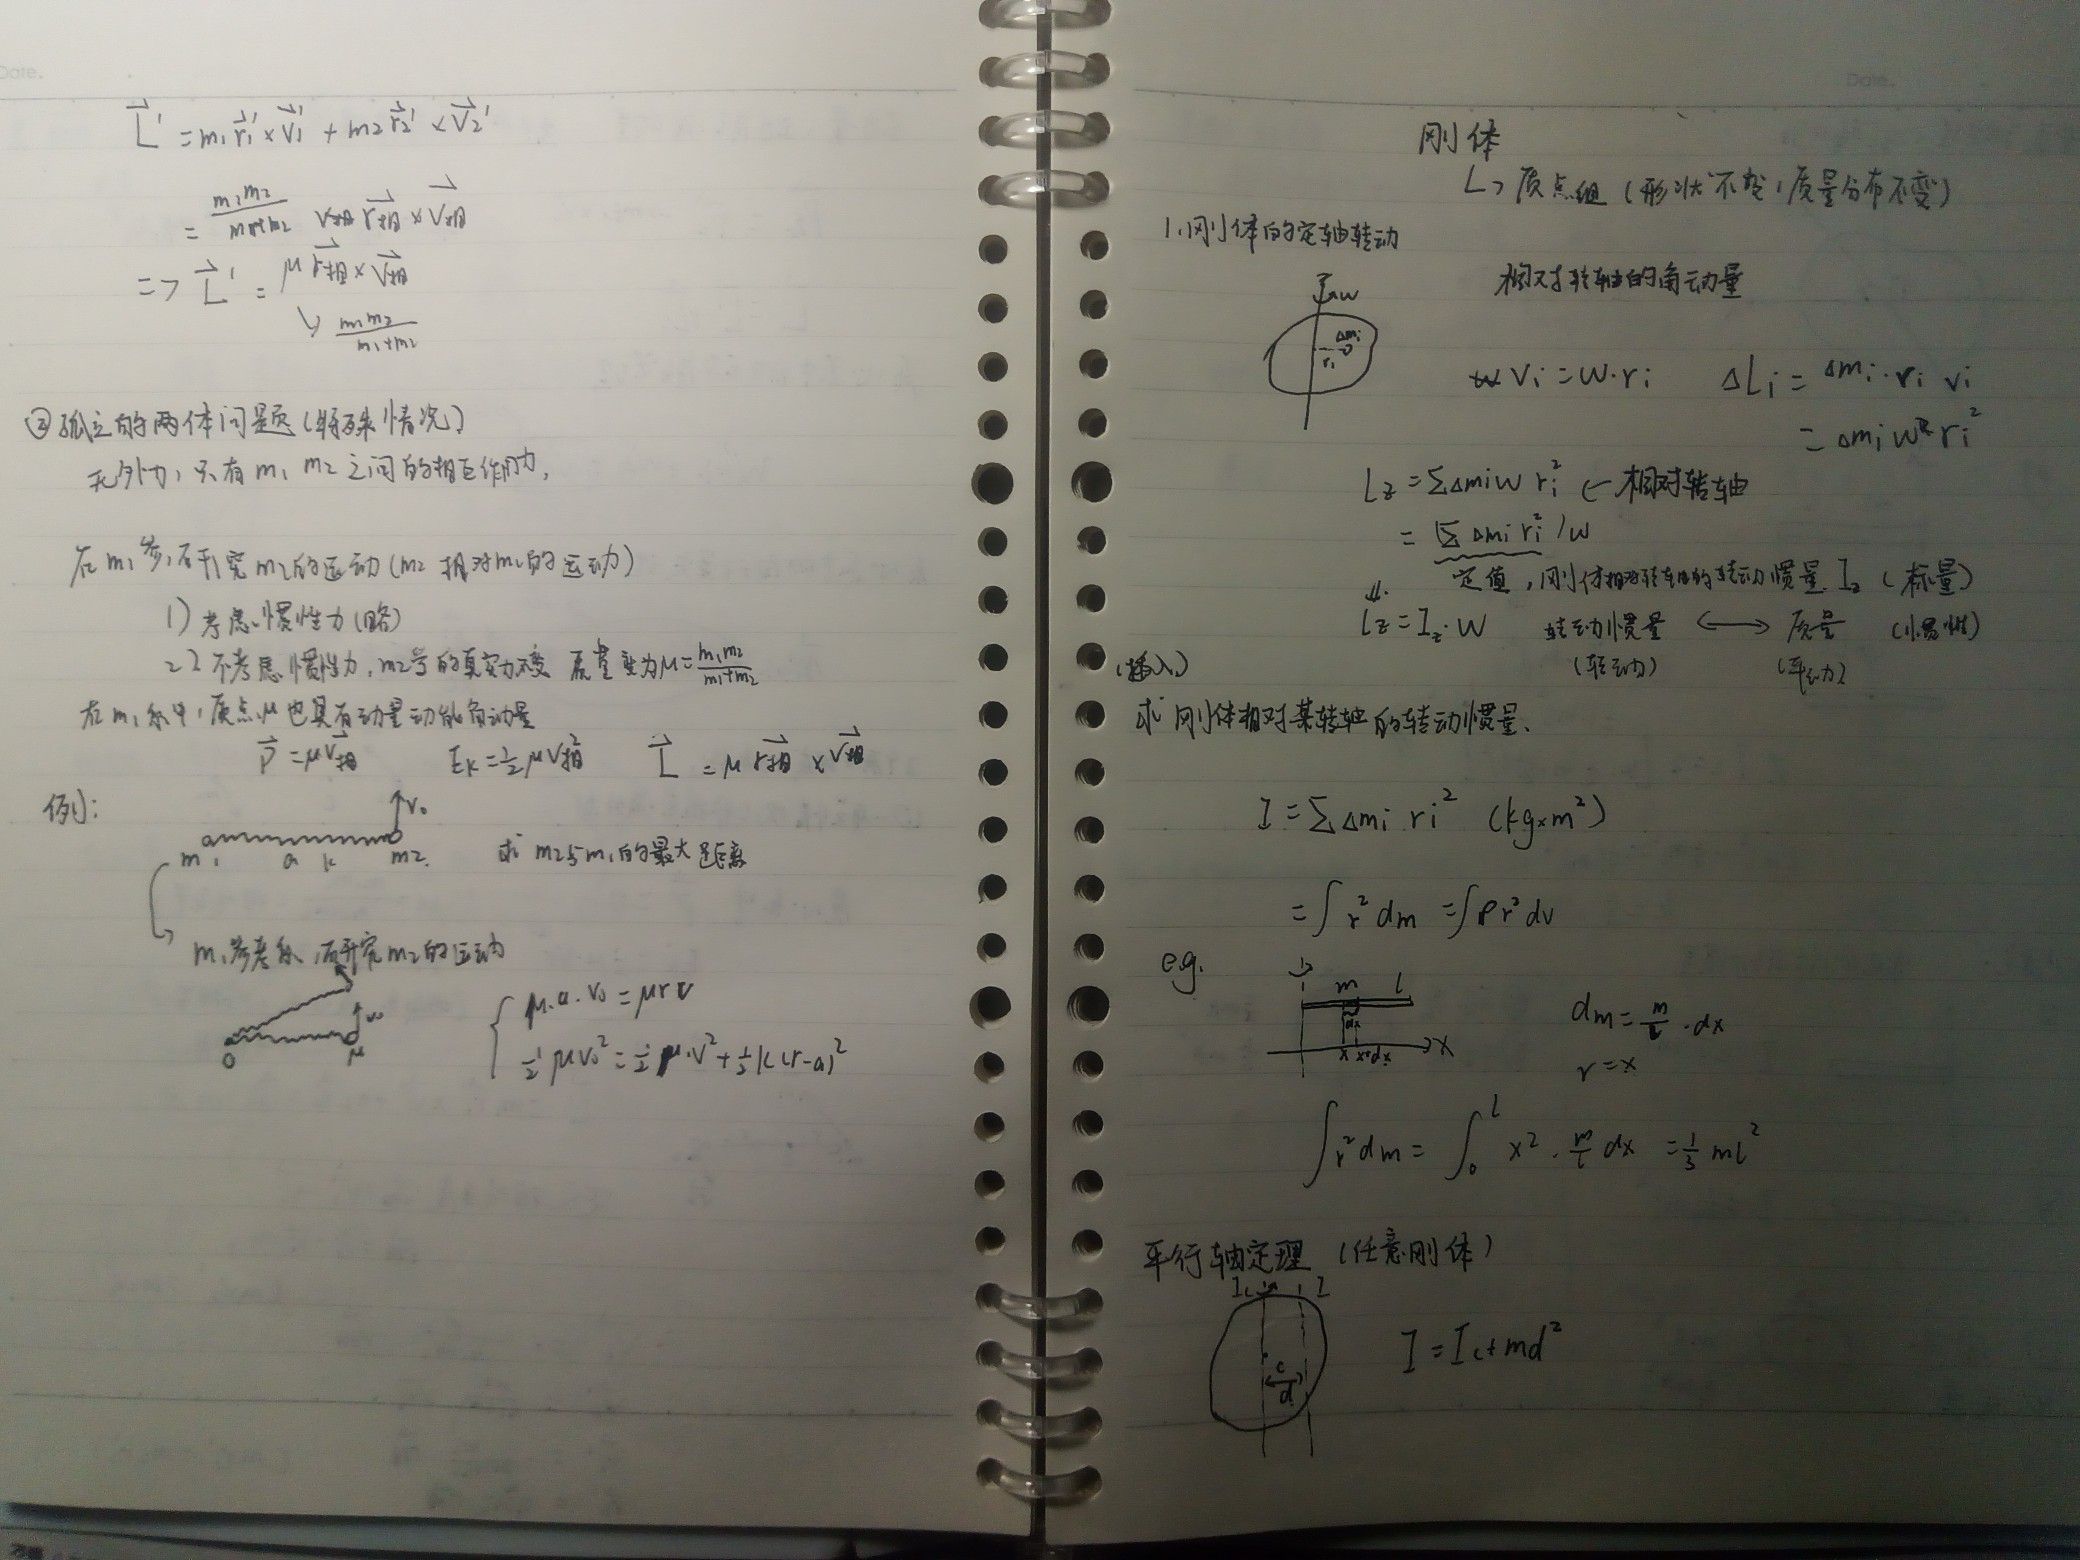 Date.
L⃗' = m₁r⃗₁' × v⃗₁' + m₂r⃗₂' × v⃗₂'
= m₁m₂/(m₁+m₂) r⃗相 × v⃗相
=> L⃗' = μ r⃗相 × v⃗相
↘ m₁m₂/(m₁+m₂)
② 孤立的两体问题(特殊情况)
无外力,只有m₁ m₂之间的相互作用力,
在m₁参,研究m₂的运动(m₂相对m₁的运动)
1) 考虑惯性力(略)
2) 不考虑惯性力,m₂受的真实力不变 质量变为μ=m₁m₂/(m₁+m₂)
在m₁系中,质点μ也具有动量动能角动量
P⃗ = μv⃗相 Eₖ = ½μv相² L⃗ = μ r⃗相 × v⃗相
例:
v₀
m₁ a k m₂. 求m₂与m₁的最大距离
m₁参考系,研究m₂的运动
v₀
O μ
μ·a·v₀ = μrv
½μv₀² = ½μ·v² + ½k(r-a)²
Date.
刚体
↳ 质点组(形状不变,质量分布不变)
1.刚体的定轴转动
相对转轴的角动量
w
Δmᵢ
rᵢ
vᵢ = w·rᵢ ΔLᵢ = Δmᵢ·rᵢ vᵢ
= Δmᵢ w rᵢ²
Lz = ΣΔmᵢw rᵢ² ← 相对转轴
= (Σ Δmᵢ rᵢ²)w
定值,刚体相对转轴的转动惯量 Iz (标量)
⇓
Lz = Iz·w 转动惯量 ↔ 质量 (惯性)
(转动) (平动)
(插入)
求刚体相对某转轴的转动惯量.
I = Σ Δmᵢ rᵢ² (kg×m²)
= ∫ r² dm = ∫ρr²dv
e.g.
m l
dx
x x+dx x
dm = m/l · dx
r = x
∫r²dm = ∫₀ˡ x² · m/l dx = ⅓ml²
平行轴定理 (任意刚体)
Ic I
c
d
I = Ic + md²